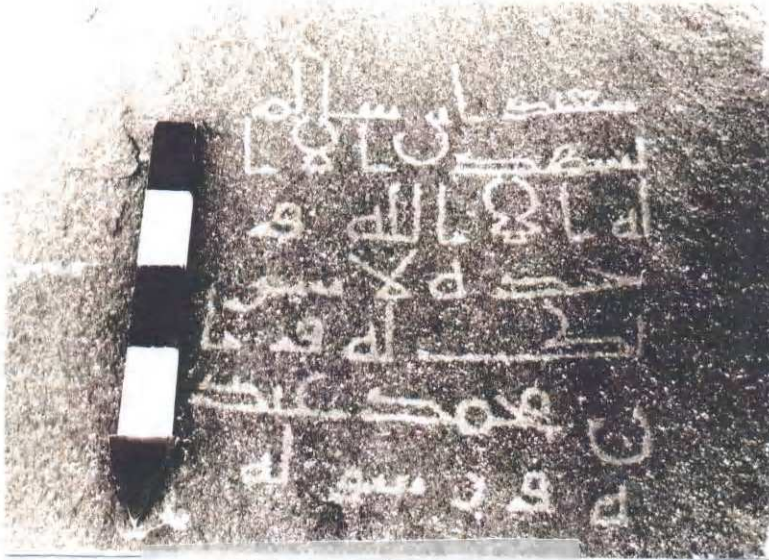 سعيد ابن سالم
يشهد ان لا ا
له الا الله و
حده لا شر
يك له وا
ن محمد عبد
ه و رسوله